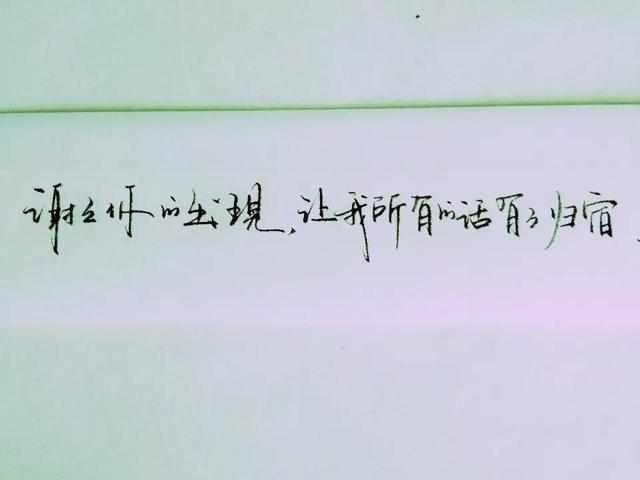 谢谢你的出現,让我所有的话有了归宿.